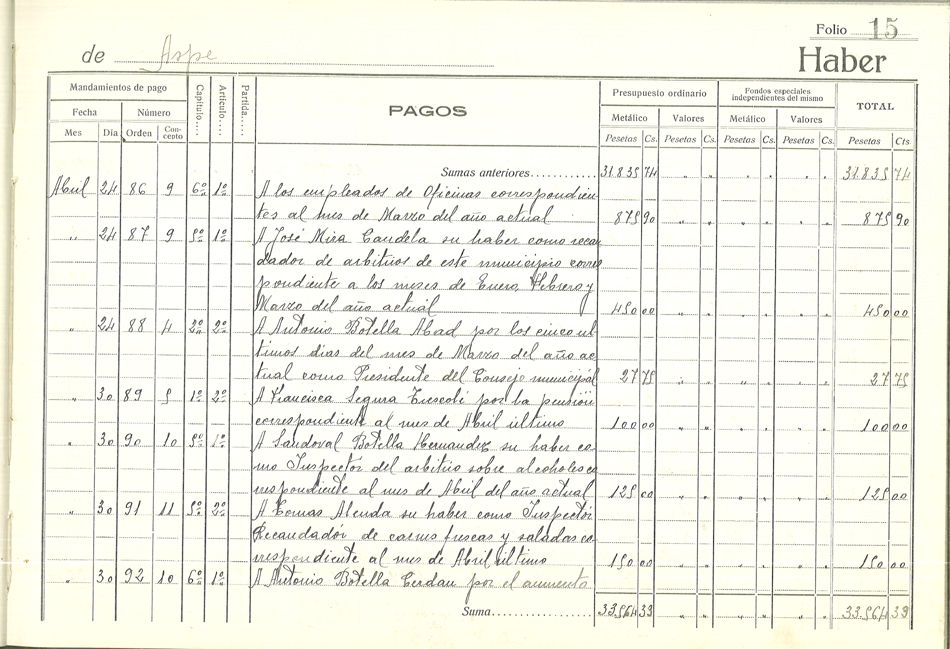 Folio 15
de Aspe
Haber
Mandamientos de pago Capítulo.... Artículo.... Partida..... PAGOS Presupuesto ordinario Fondos especiales independientes del mismo TOTAL
Fecha Número Metálico Valores Metálico Valores
Mes Día Orden Concepto Pesetas Cs. Pesetas Cs. Pesetas Cs. Pesetas Cs. Pesetas Cts
Sumas anteriores............ 31.835 74 " " " " " " 31.835 74
Abril 24 86 9 6º 1º A los empleados de Oficinas correspondien
tes al mes de Marzo del año actual 875 90 " " " " " " 875 90
" 24 87 9 5º 1º A José Mira Candela su haber como recau
dador de arbitrios de este municipio corres
pondiente a los meses de Enero, Febrero y
Marzo del año actual 450 00 " " " " " " 450 00
" 24 88 4 2º 2º A Antonio Botella Abad por los cinco ul
timos dias del mes de Marzo del año ac
tual como Presidente del Consejo municipal 27 75 " " " " " " 27 75
" 30 89 5 1º 2º A Francisca Segura por la pensión
correspondiente al mes de Abril último 100 00 " " " " " " 100 00
" 30 90 10 5º 1º A Sandoval Botella Hernandez su haber co
mo Inspector del arbitrio sobre alcoholes co
rrespondiente al mes de Abril del año actual 125 00 " " " " " " 125 00
" 30 91 11 5º 2º A Tomas Alenda su haber como Inspector
Recaudador de carnes frescas y saladas co
rrespondiente al mes de Abril último 150 00 " " " " " " 150 00
" 30 92 10 6º 1º A Antonio Botella Cerdan por el aumento
Suma................... 33.564 39 " " " " " " 33.564 39